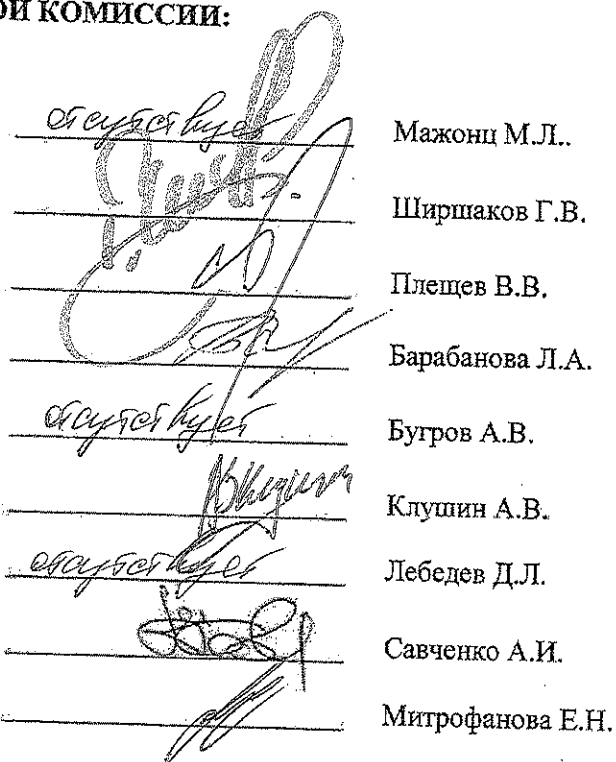 ОЙ КОМИССИИ:
отсутствует Мажонц М.Л..
Ширшаков Г.В.
Плещев В.В.
Барабанова Л.А.
отсутствует Бугров А.В.
Клушин А.В.
отсутствует Лебедев Д.Л.
Савченко А.И.
Митрофанова Е.Н.